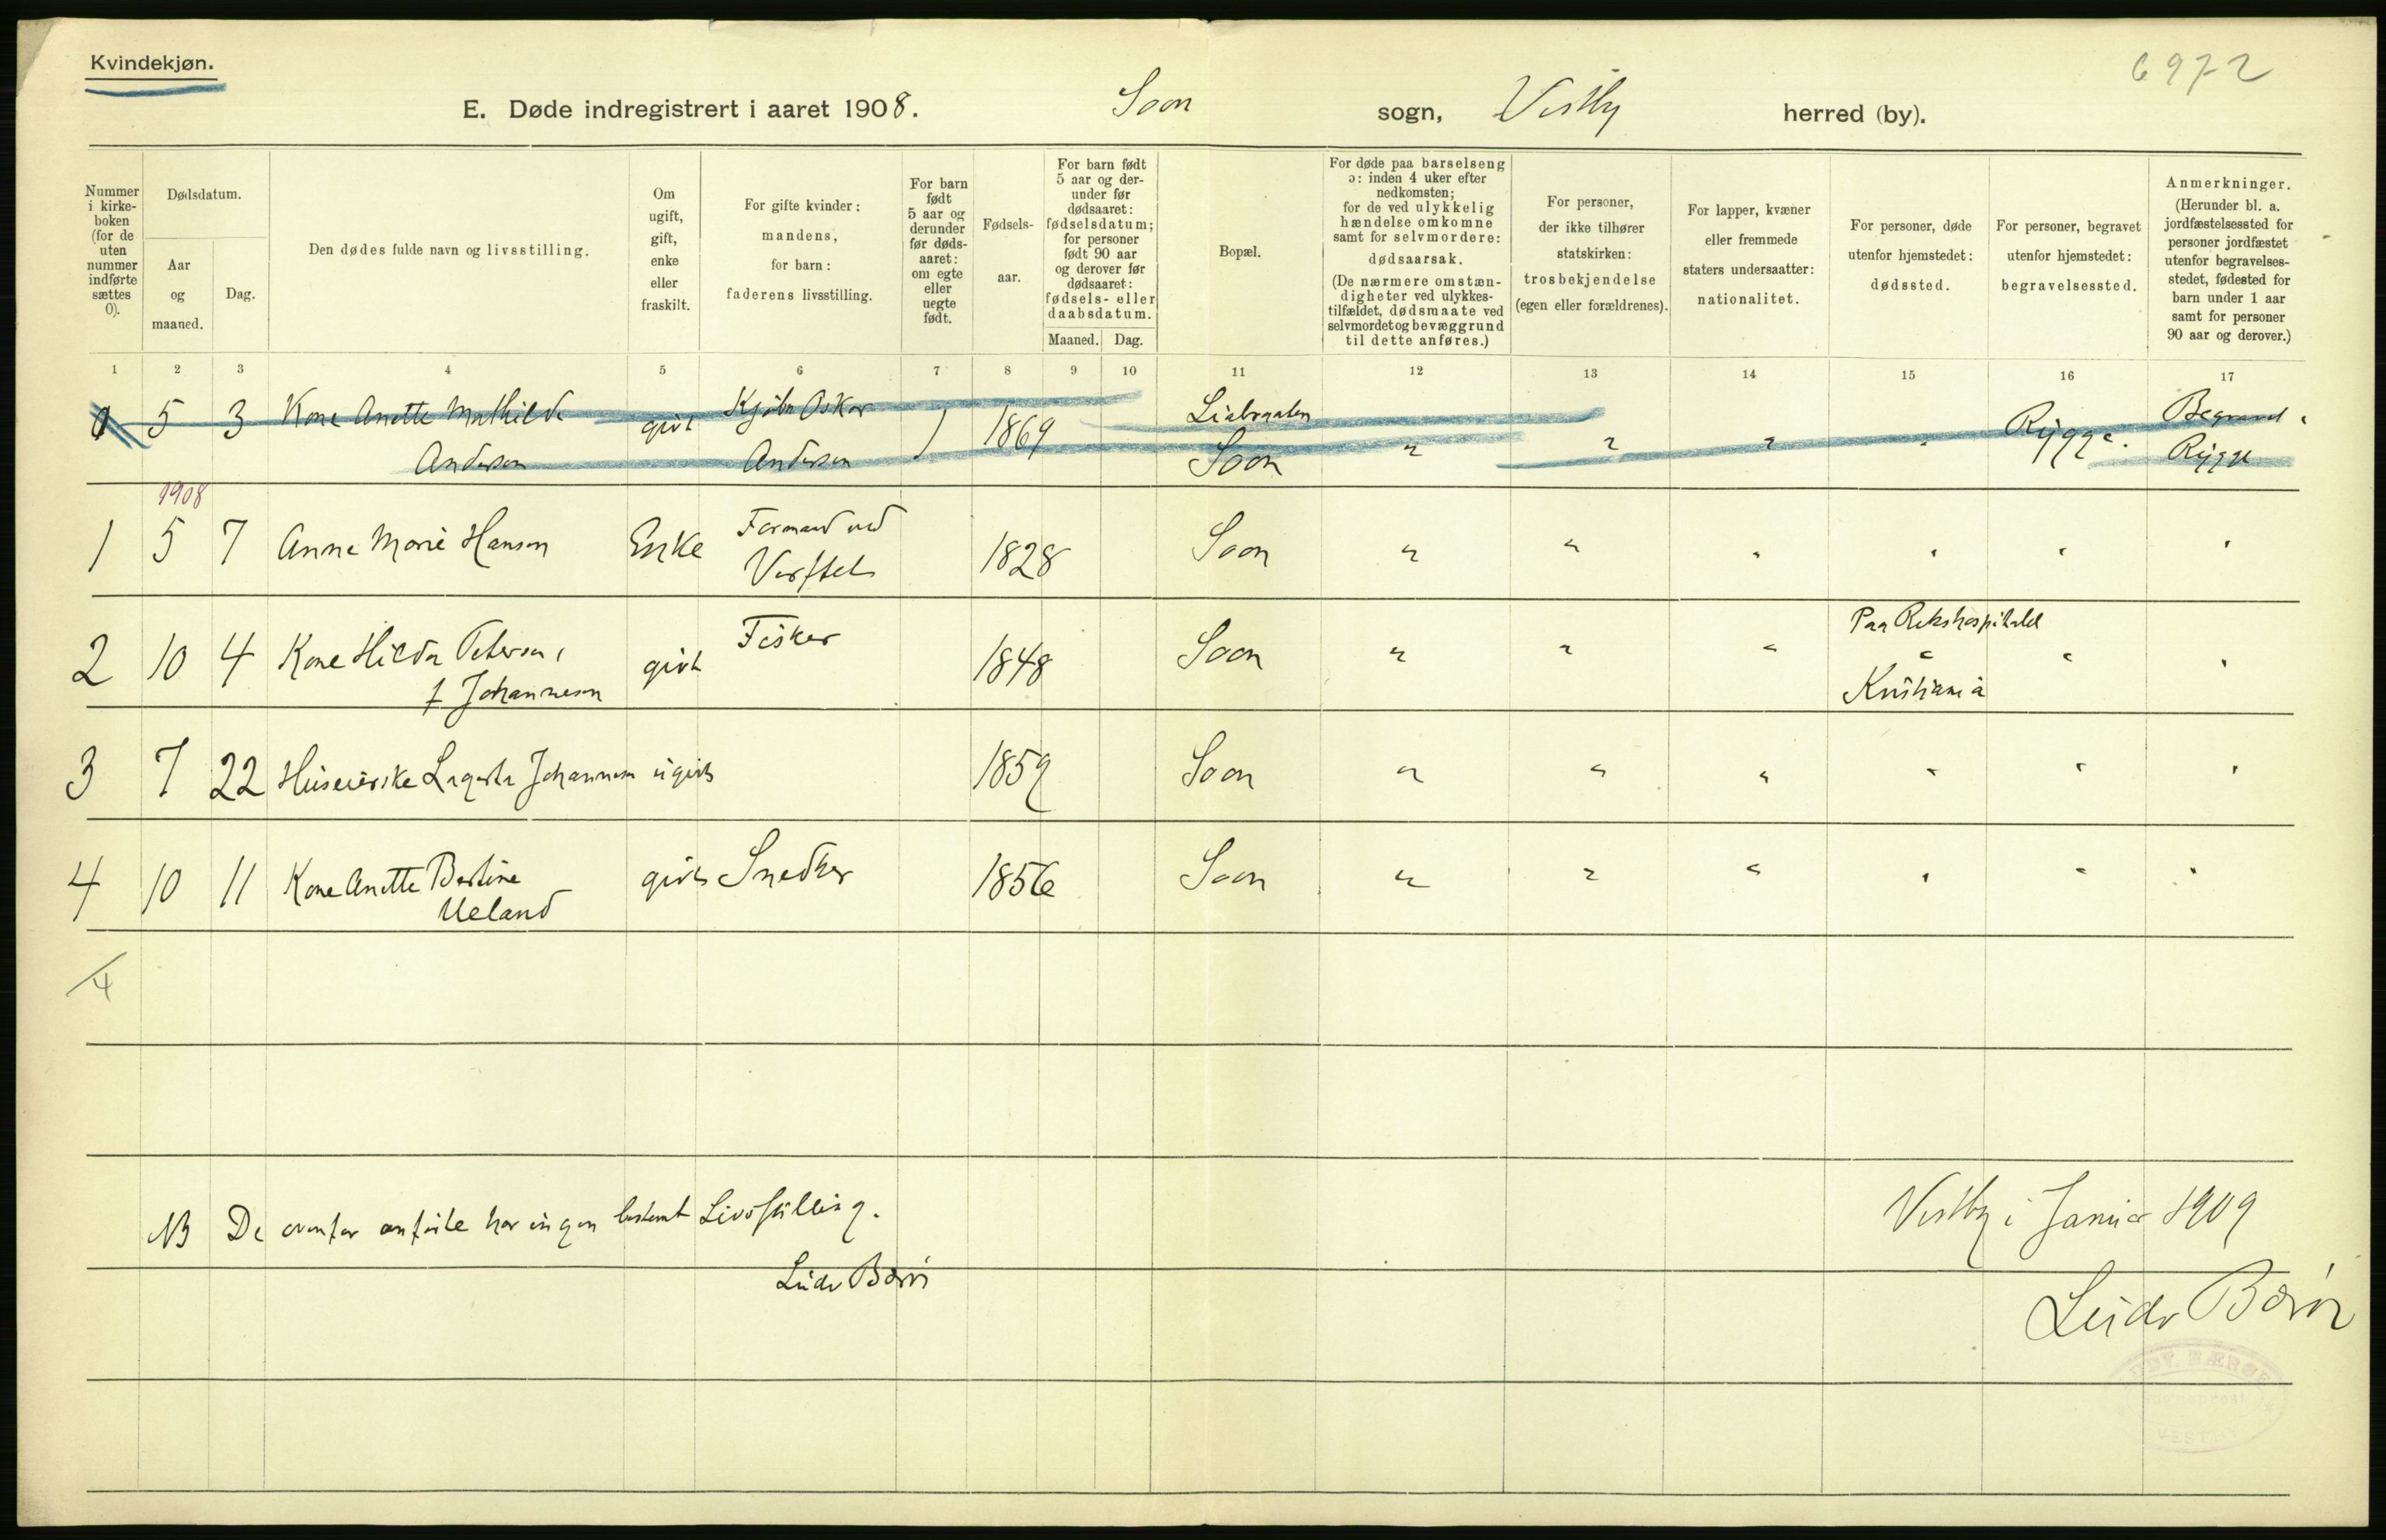 Kvindekjøn.
6972
E. Døde indregistrert i aaret 1908. Soon sogn, Vestby herred (by).
Nummer i kirke- boken (for de uten nummer indførte sættes 0).
Dødsdatum.
Aar og maaned.
Dag.
Den dødes fulde navn og livsstilling.
Om ugift, gift, enke eller fraskilt.
For gifte kvinder: mandens, for barn: faderens livsstilling.
For barn født 5 aar og derunder før døds- aaret: om egte eller uegte født.
Fødsels- aar.
For barn født 5 aar og der- under før dødsaaret: fødselsdatum; for personer født 90 aar og derover før dødsaaret: fødsels- eller daabsdatum.
Maaned. Dag.
Bopæl.
For døde paa barselseng ɔ: inden 4 uker efter nedkomsten; for de ved ulykkelig hændelse omkomne samt for selvmordere: dødsaarsak. (De nærmere omstæn- digheter ved ulykkes- tilfældet, dødsmaate ved selvmordet og bevæggrund til dette anføres.)
For personer, der ikke tilhører statskirken: trosbekjendelse (egen eller forældrenes).
For lapper, kvæner eller fremmede staters undersaatter: nationalitet.
For personer, døde utenfor hjemstedet: dødssted.
For personer, begravet utenfor hjemstedet: begravelsessted.
Anmerkninger. (Herunder bl. a. jordfæstelsessted for personer jordfæstet utenfor begravelses- stedet, fødested for barn under 1 aar samt for personer 90 aar og derover.)
1 2 3 4 5 6 7 8 9 10 11 12 13 14 15 16 17
5 3 Kone Anette Mathilde givt Oskar
Andersen Andersen 1869 Soon " " " " Rygge. Rygge
1908
1 5 7 Anna Marie Hansen Enke Formand ved 1828 Soon " " " " " "
Verftet
2 10 4 Kone Hilda Petersen, givt Fisker 1848 Soon " " " Paa Rikshospitalet " "
f Johannesen Kristiania
3 7 22 Huseierske Lagerta Johannesen ugivt 1859 Soon " " " " " "
4 10 11 Kone Anette Bertine givt Snedker 1856 Soon " " " " " "
Ueland
4
NB De ovenfor anførte har ingen bestemt Livsstilling.
Ludv Bærø
Vestby i Januar 1909
Ludv Bærø
VESTBY